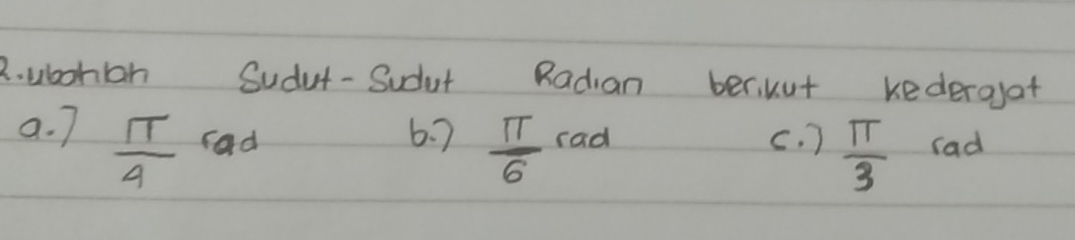 2. ubahlah Sudut-Sudut Radian berikut kederajat
a.) π/4 rad b.) π/6 rad c.) π/3 rad